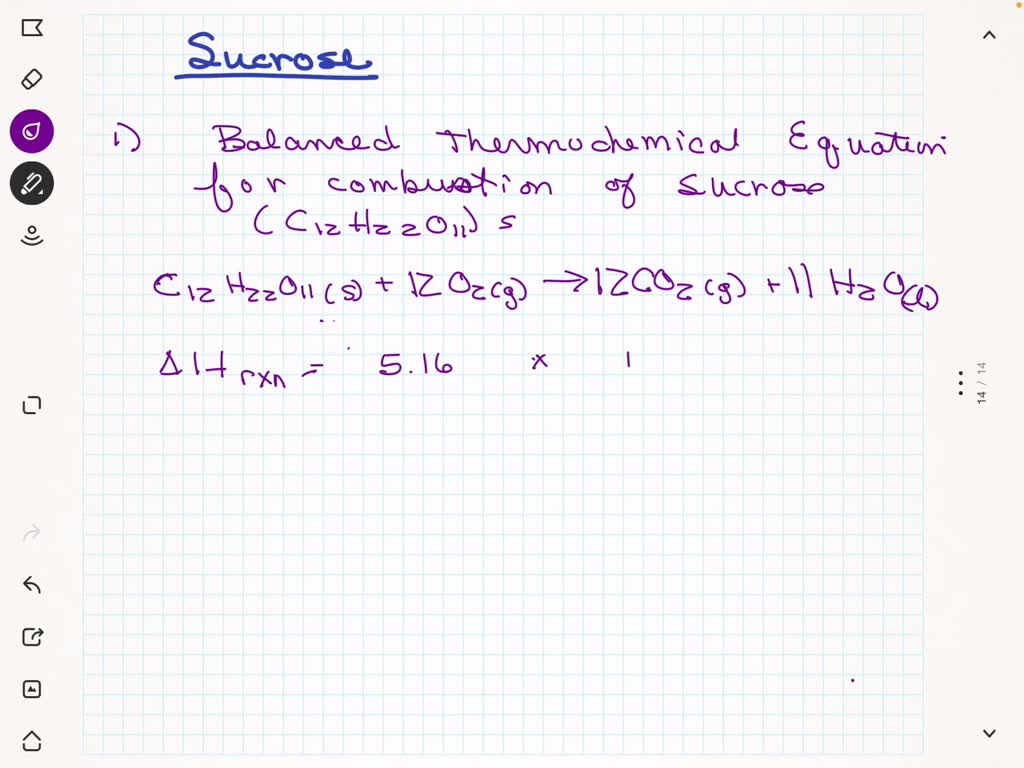 Sucrose
1) Balanced Thermochemical Equation
for combustion of sucrose
(C12H22O11) s
C12H22O11(s) + 12O2(g) → 12CO2(g) + 11H2O(l)
ΔHrxn = 5.16 x 1
14 / 14